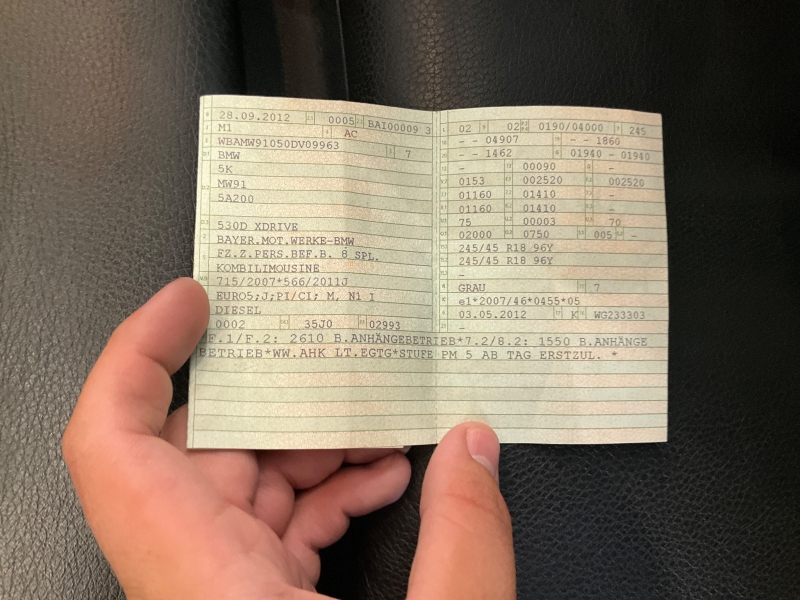 28.09.2012 0005 BAI00009 3
M1 AC
WBAMW91050DV09963
BMW 7
5K
MW91
5A200
530D XDRIVE
BAYER.MOT.WERKE-BMW
FZ.Z.PERS.BEF.B. 8 SPL.
KOMBILIMOUSINE
715/2007*566/2011J
EURO5;J;PI/CI; M, N1 I
DIESEL
0002 35J0 02993
02 02 0190/04000 245
- - 04907 - - 1860
- - 1462 01940 - 01940
- 00090 -
0153 002520 002520
01160 01410 -
01160 01410 -
75 00003 70
02000 0750 005 -
245/45 R18 96Y
245/45 R18 96Y
-
GRAU 7
e1*2007/46*0455*05
03.05.2012 K WG233303
-
F.1/F.2: 2610 B.ANHÄNGEBETRIEB*7.2/8.2: 1550 B.ANHÄNGE
BETRIEB*WW.AHK LT.EGTG*STUFE PM 5 AB TAG ERSTZUL. *